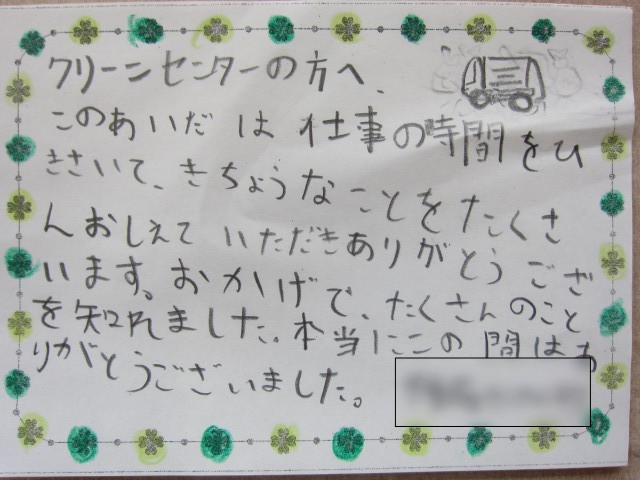 クリーンセンターの方へ、
このあいだは仕事の時間をひ
きさいて、きちょうなことをたくさ
んおしえていただきありがとうござ
います。おかげで、たくさんのこと
を知れました。本当にこの間はあ
りがとうございました。